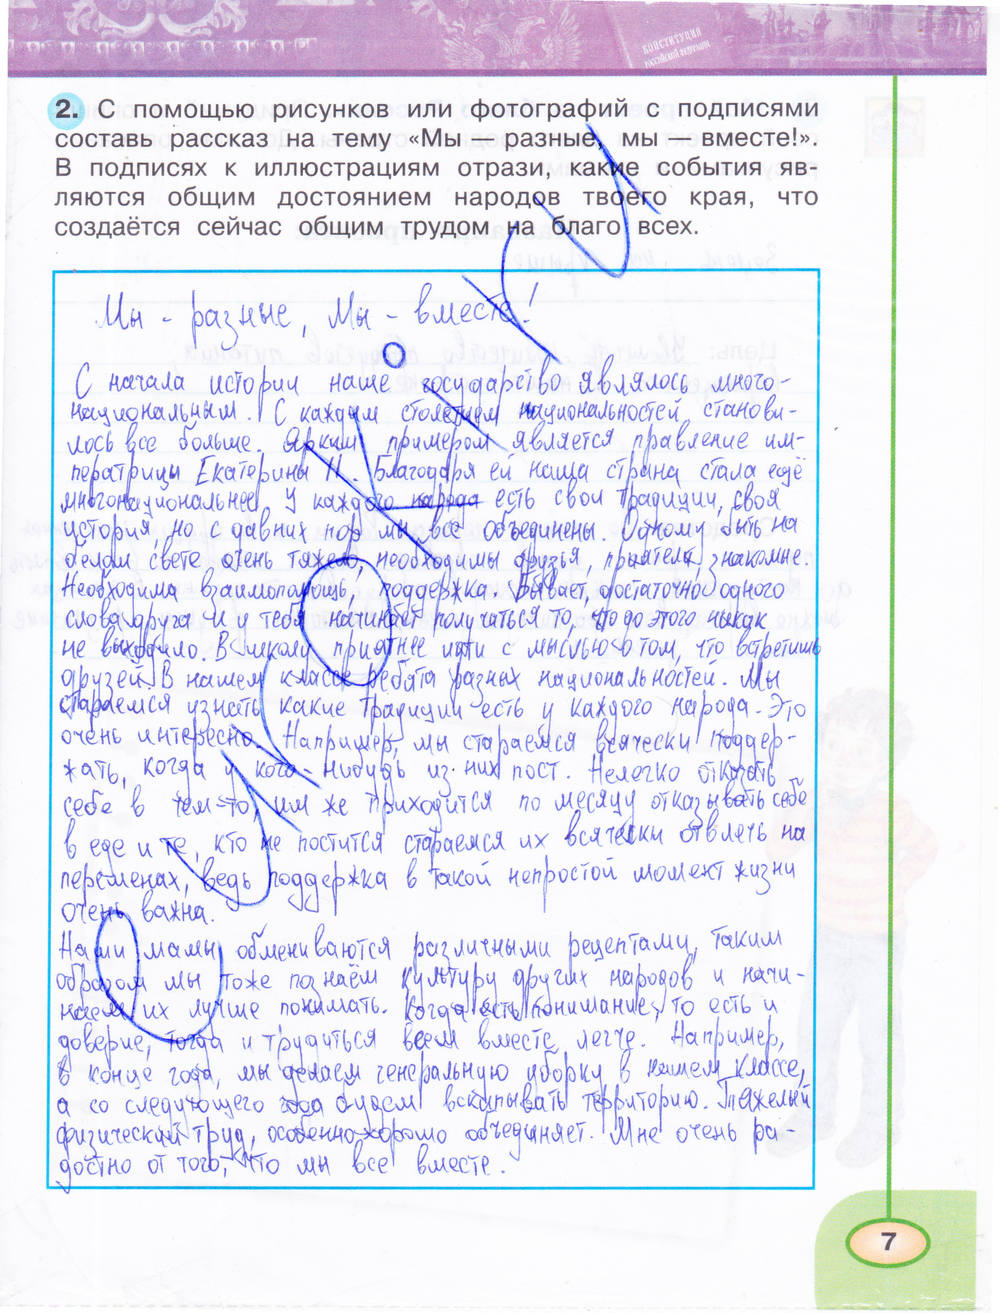 КОНСТИТУЦИЯ
РОССИЙСКОЙ ФЕДЕРАЦИИ
2. С помощью рисунков или фотографий с подписями
составь рассказ на тему «Мы — разные, мы — вместе!».
В подписях к иллюстрациям отрази, какие события яв-
ляются общим достоянием народов твоего края, что
создаётся сейчас общим трудом на благо всех.
Мы - разные, Мы - вместе!
С начала истории наше государство являлось много-
национальным. С каждым столетием национальностей станови-
лось все больше. Ярким примером является правление им-
ператрицы Екатерины II. Благодаря ей наша страна стала ещё
многонациональнее. У каждого народа есть свои традиции, своя
история, но с давних пор мы все объединены. Одному быть на
белом свете очень тяжело, необходимы друзья, приятели, знакомые.
Необходима взаимопомощь, поддержка. Бывает, достаточно одного
слова друга и у тебя начинает получаться то, что до этого никак
не выходило. В школу приятнее идти с мыслью о том, что встретишь
друзей. В нашем классе ребята разных национальностей. Мы
стараемся узнать какие традиции есть у каждого народа. Это
очень интересно. Например, мы стараемся всячески поддер-
жать, когда у кого-нибудь из них пост. Нелегко отказать
себе в чем-то, им же приходится по месяцу отказывать себе
в еде и те, кто не постится стараемся их всячески отвлечь на
переменах, ведь поддержка в такой непростой момент жизни
очень важна.
Наши мамы обмениваются различными рецептами, таким
образом мы тоже познаём культуру других народов и начи-
наем их лучше понимать. Когда есть понимание, то есть и
доверие, тогда и трудиться всем вместе легче. Например,
в конце года, мы делаем генеральную уборку в нашем классе,
а со следующего года будем вскапывать территорию. Тяжелый
физический труд, особенно хорошо объединяет. Мне очень ра-
достно от того, что мы все вместе.
7